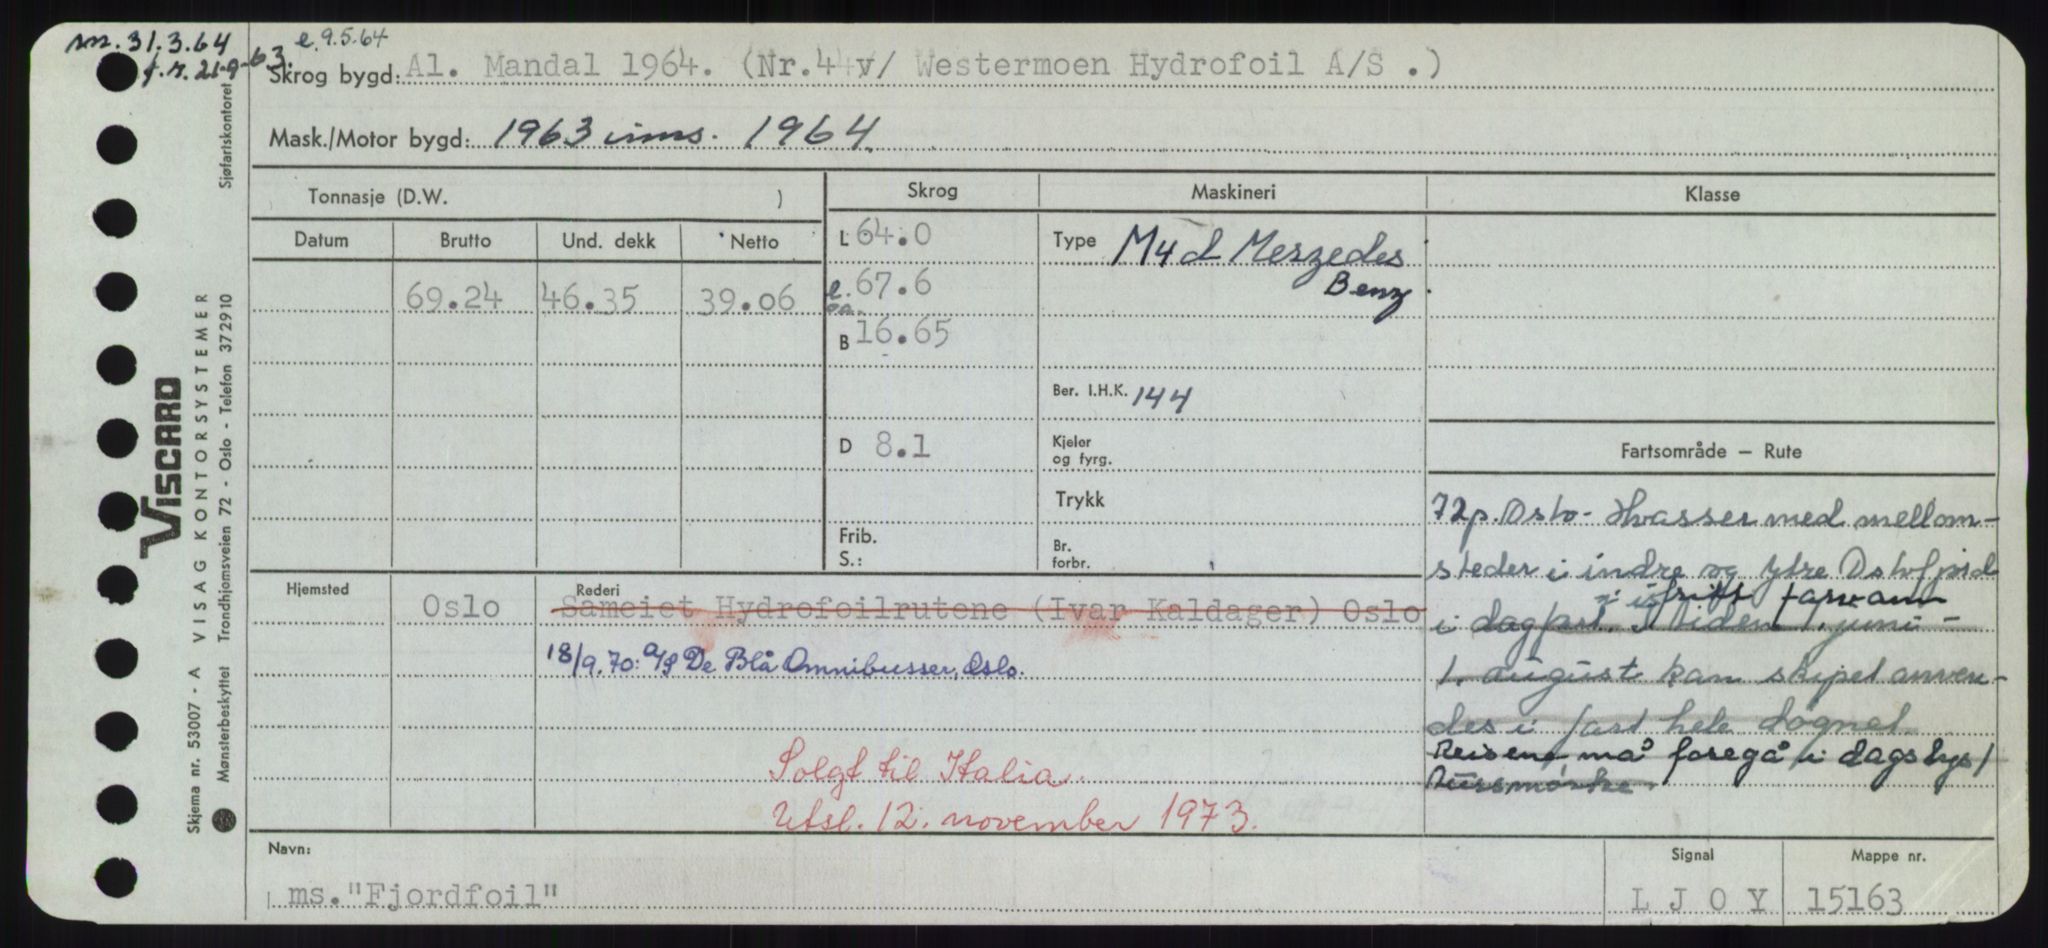 m. 31.3.64
e. 9.5.64
f.r. 21-9-63.
Skrog bygd: Al. Mandal 1964. (Nr.44 v/ Westermoen Hydrofoil A/S .)
Mask./Motor bygd: 1963 inns. 1964.
Tonnasje (D.W. )
Skrog
Maskineri
Klasse
Datum
Brutto
Und. dekk
Netto
69.24
46.35
39.06
L 64.0
l. oa. 67.6
B 16.65
D 8.1
Frib.
S.:
Type M4d Merzedes
Benz.
Ber. I.H.K. 144
Kjeler
og fyrg.
Trykk
Br.
forbr.
Fartsområde – Rute
72p. Oslo - Hvasser med mellom-
steder i indre og ytre Oslofjord
i isfritt farvann
i dagfart. I tiden 1. juni -
1. august kan skipet anven-
des i fart hele døgnet
Reisene må foregå i dagslys/
Tussmørke.
Hjemsted
Oslo
Rederi
Sameiet Hydrofoilrutene (Ivar Kaldager) Oslo
18/9.70: A/S De Blå Omnibusser, Oslo.
Solgt til Italia.
Utsl. 12. november 1973.
Navn:
ms. "Fjordfoil"
Signal
L J O Y
Mappe nr.
15163
Skjema nr. 53007 - A VISAG KONTORSYSTEMER
Mønsterbeskyttet Trondhjomsveien 72 - Oslo - Telefon 372910
Sjøfartskontoret
VISCARD